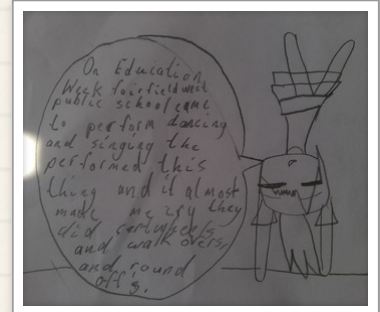 On Education
Week fairfield west
public school came
to perform dancing
and singing the
performed this
thing and it almost
made me cry they
did cartwheels
and walk overs,
and round
off's.